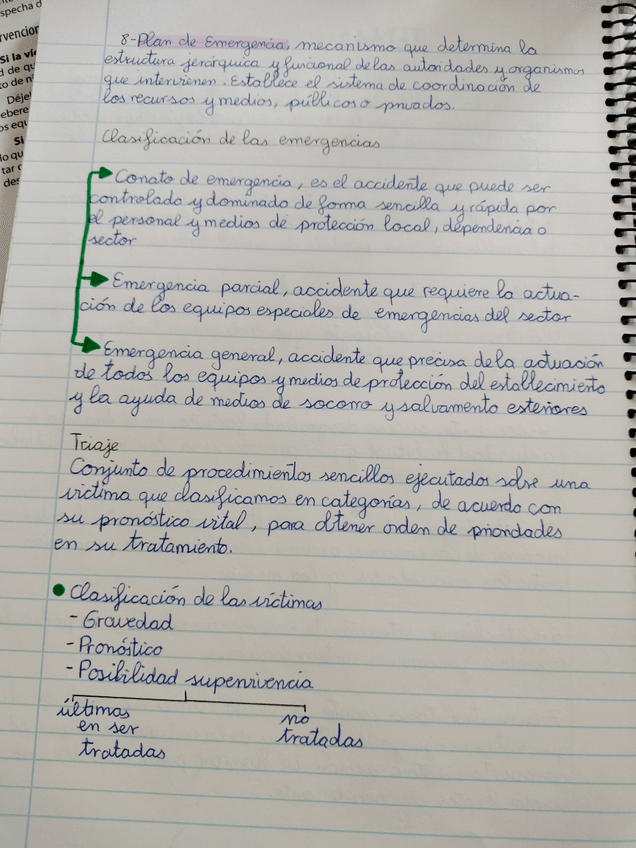 specha d
rvencion
Si la víc
d de qu
to de n
Déje
ebere
os equ
Si
lo qu
tar c
des
8-Plan de Emergencia, mecanismo que determina la
estructura jerárquica y funcional de las autoridades y organismos
que intervienen. Establece el sistema de coordinación de
los recursos y medios, públicos o privados.
Clasificación de las emergencias
Conato de emergencia, es el accidente que puede ser
controlado y dominado de forma sencilla y rápida por
el personal y medios de protección local, dependencia o
sector
Emergencia parcial, accidente que requiere la actua-
ción de los equipos especiales de emergencias del sector
Emergencia general, accidente que precisa de la actuación
de todos los equipos y medios de protección del establecimiento
y la ayuda de medios de socorro y salvamento exteriores
Triaje
Conjunto de procedimientos sencillos ejecutados sobre una
víctima que clasificamos en categorías, de acuerdo con
su pronóstico vital, para obtener orden de prioridades
en su tratamiento.
Clasificación de las víctimas
- Gravedad
- Pronóstico
- Posibilidad supervivencia
últimas no
en ser tratadas
tratadas